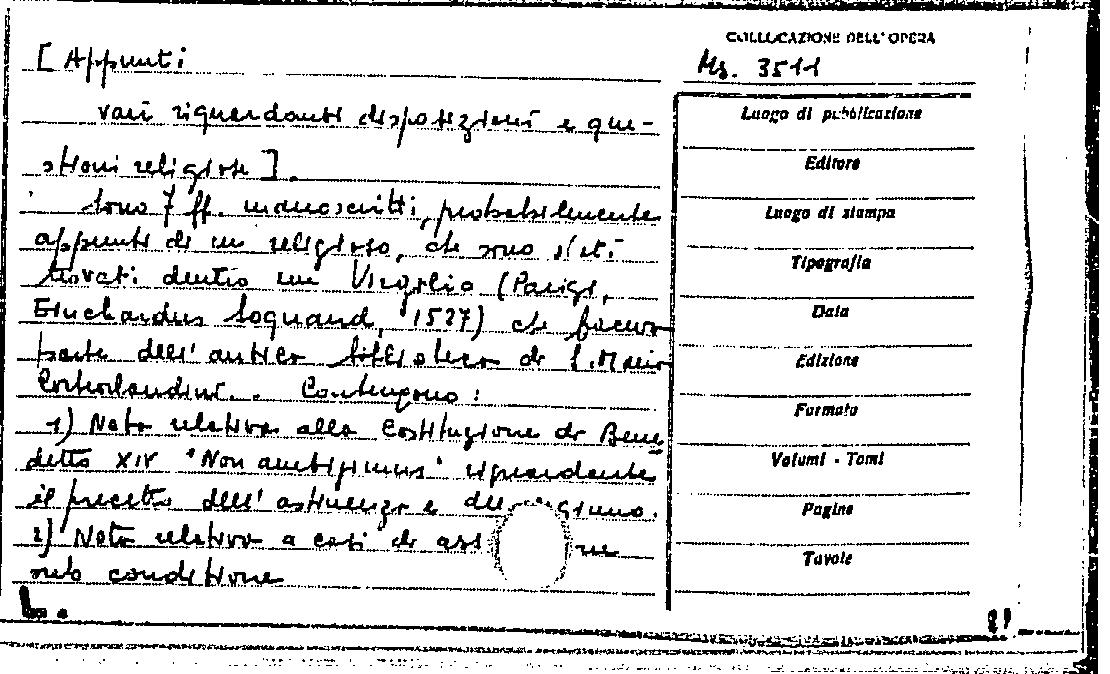 COLLOCAZIONE DELL'OPERA
Ms. 3511
[Appunti
vari riguardanti disposizioni e que-
stioni religiose].
Sono 7 ff. manoscritti, probabilmente
appunti di un religioso, che sono stati
trovati dentro un Virgilio (Parigi,
1527) che faceva
parte dell'antica biblioteca di S. Maria
Corteorlandini. Contengono:
1) Nota relativa alla Costituzione di Bene
detto XIV "Non ambigimus" riguardante
il precetto dell'astinenza e del digiuno.
2) Nota relativa a casi di
sub conditione
Luogo di pubblicazione
Editore
Luogo di stampa
Tipografia
Data
Edizione
Formato
Volumi - Tomi
Pagine
Tavole